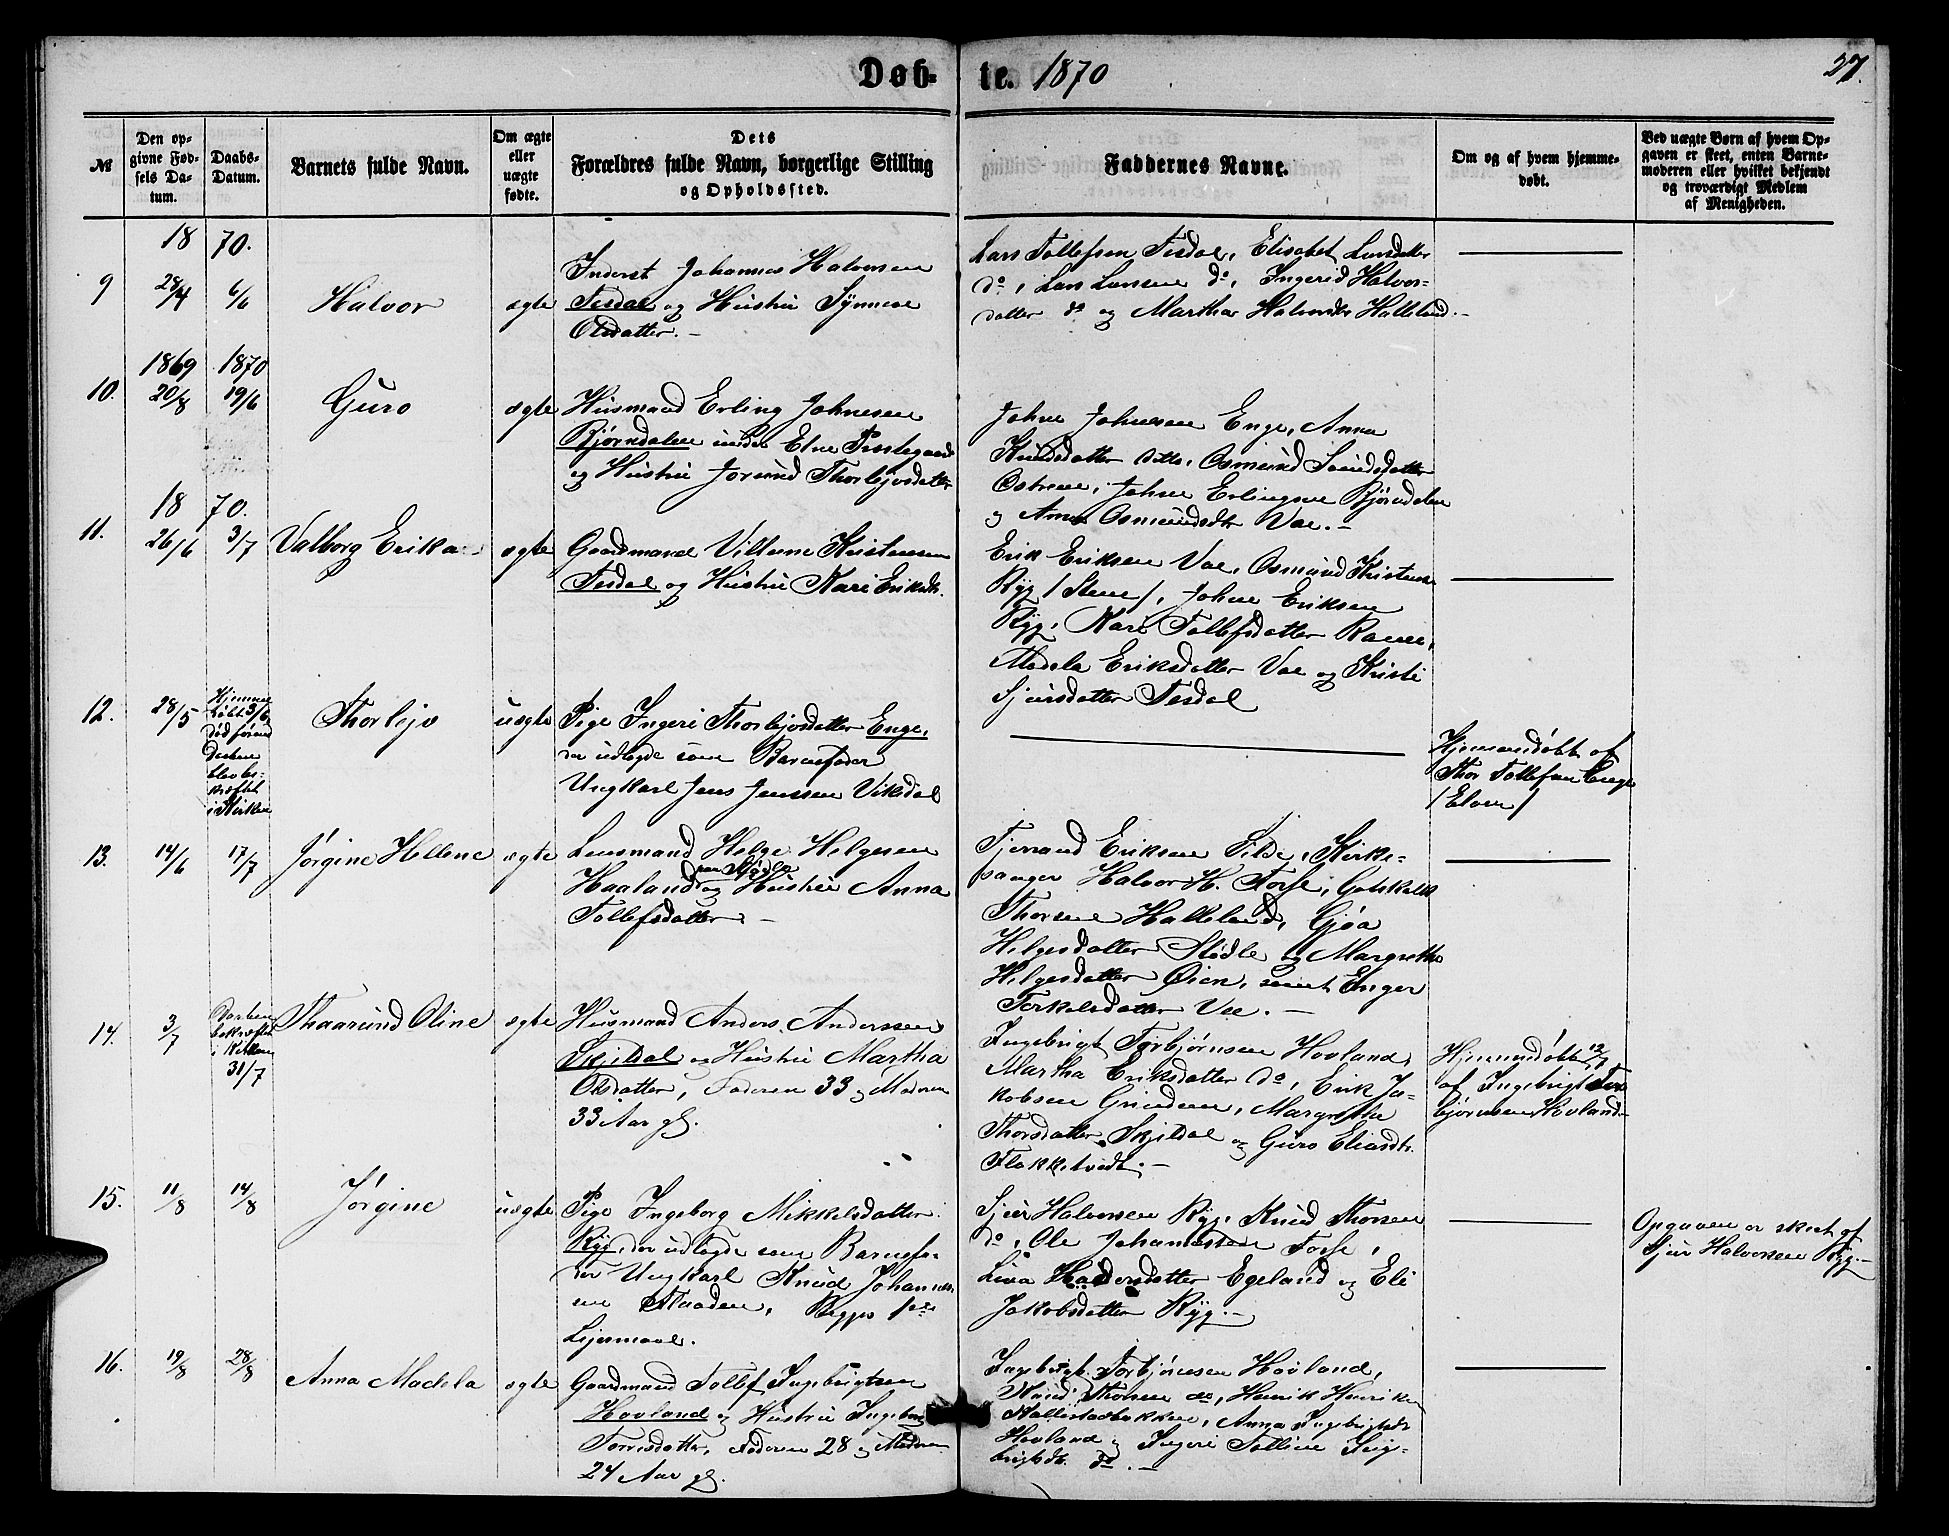 Døb- te. 1870
27.
№
Den op-
givne Fød-
sels Da-
tum.
Daabs-
Datum.
Barnets fulde Navn.
Om ægte
eller
uægte
fødte.
Dets
Forældres fulde Navn, borgerlige Stilling
og Opholdssted.
Faddernes Navne.
Om og af hvem hjemme-
døbt.
Ved uægte Børn af hvem Op-
gaven er skeet, enten Barne-
moderen eller hvilket bekjendt
og troværdigt Medlem
af Menigheden.
18 70.
9 28/4 6/6 Halvor ægte
Inderst Johannes Halvorsen
Tesdal og Hustru Synneve
Olsdatter.-
Lars Tollefsen Tesdal, Elisabet Larsdatter
do, Lars Larsen do, Ingerid Halvors-
datter do og Martha Halvorsdtr Halleland.-
1869 1870
10. 20/8 19/6 Guro ægte
Husmand Erling Johnesen
Bjørndalen under Elne Præstegaard
og Hustru Jorund Thorlejvsdatter
Johne Johnesen Enge, Anna
Knudsdatter ditto, Osmund
Johne Erlingsen Bjørndalen
og Anna Osmundsdtr Vae.-
18 70.
11. 26/6 3/7 Valborg Erika ægte
Gaardmand Villum Kristensen
Tesdal og Hustru Kari Eriksdtr.
Erik Eriksen Vae, Osmund Kristens
Ryg /Stene/, Johne Eriksen
Ryg, Kari Tollefsdatter
Madela Eriksdatter Vae og Kristi
Sjursdatter Tesdal
12. 28/5
Hjemme
døbt 3/6,
død førend
Daaben
blev be-
kræftet
i Kirken
Thorlejv uægte
Pige Ingeri Thorlejvsdatter Enge,
der udlagde som Barnefader
Ungkarl Jens Jenssen Vikedal
Hjemmedøbt af
Thor Tollefsen Enge
/Elven/
13. 14/6 17/7 Jørgine Hellene ægte
Lensmand Helge Helgesen
paa Stødle
Haaland og Hustru Anna
Tollefsdatter.-
Tjerand Eriksen Silde, Kirke-
sanger Halvor H. Fosse, Gotskalk
Thorsen Halleland, Gjøa
Helgesdatter Stødle og Margrethe
Helgesdatter Øien, samt Inger
Torkelsdatter Vae.-
14. 3/7
Daaben
bekræftet
i Kirken
31/7
Thaarund Oline ægte
Husmand Anders Anderssen
Skjildal og Hustru Martha
Olsdatter, Faderen 33 og Moderen
33 Aar gl.
Ingebrigt Torbjørnsen Hovland,
Martha Eriksdatter do, Erik Ja-
kobsen Grinden, Margrethe
Thorsdatter Skjildal og Guro Eliasdtr.
Flokketvedt.-
Hjemmedøbt 12/7
af Ingebrigt Tor
bjørnsen Hovland-
15. 11/8 14/8 Jørgine uægte
Pige Ingeborg Mikkelsdatter
Ryg, der udlagde som Barnefa-
der Ungkarl Knud Johannes
sen Lejermaal.
Sjur Halvorsen Ryg, Knud Thorsen
do, Ole Johannesen Fosse,
Lina Egeland og Eli
Jakobsdatter Ryg.-
Opgaven er skeet af
Sjur Halvorsen Ryg.-
16. 19/8 28/8 Anna Madela ægte
Gaardmand Tollef Ingebrigtsen
Hovland og Hustru Ingebor
Torrisdatter, Faderen 28 og Moderen
24 Aar gl.
Ingebrigt Torbjørnsen Hovland,
Knud Thorsen do, Henrik Henriksen
Anna Ingebrigtsdtr
Hovland og Ingeri Talline Inge-
brigtsdtr. do.-